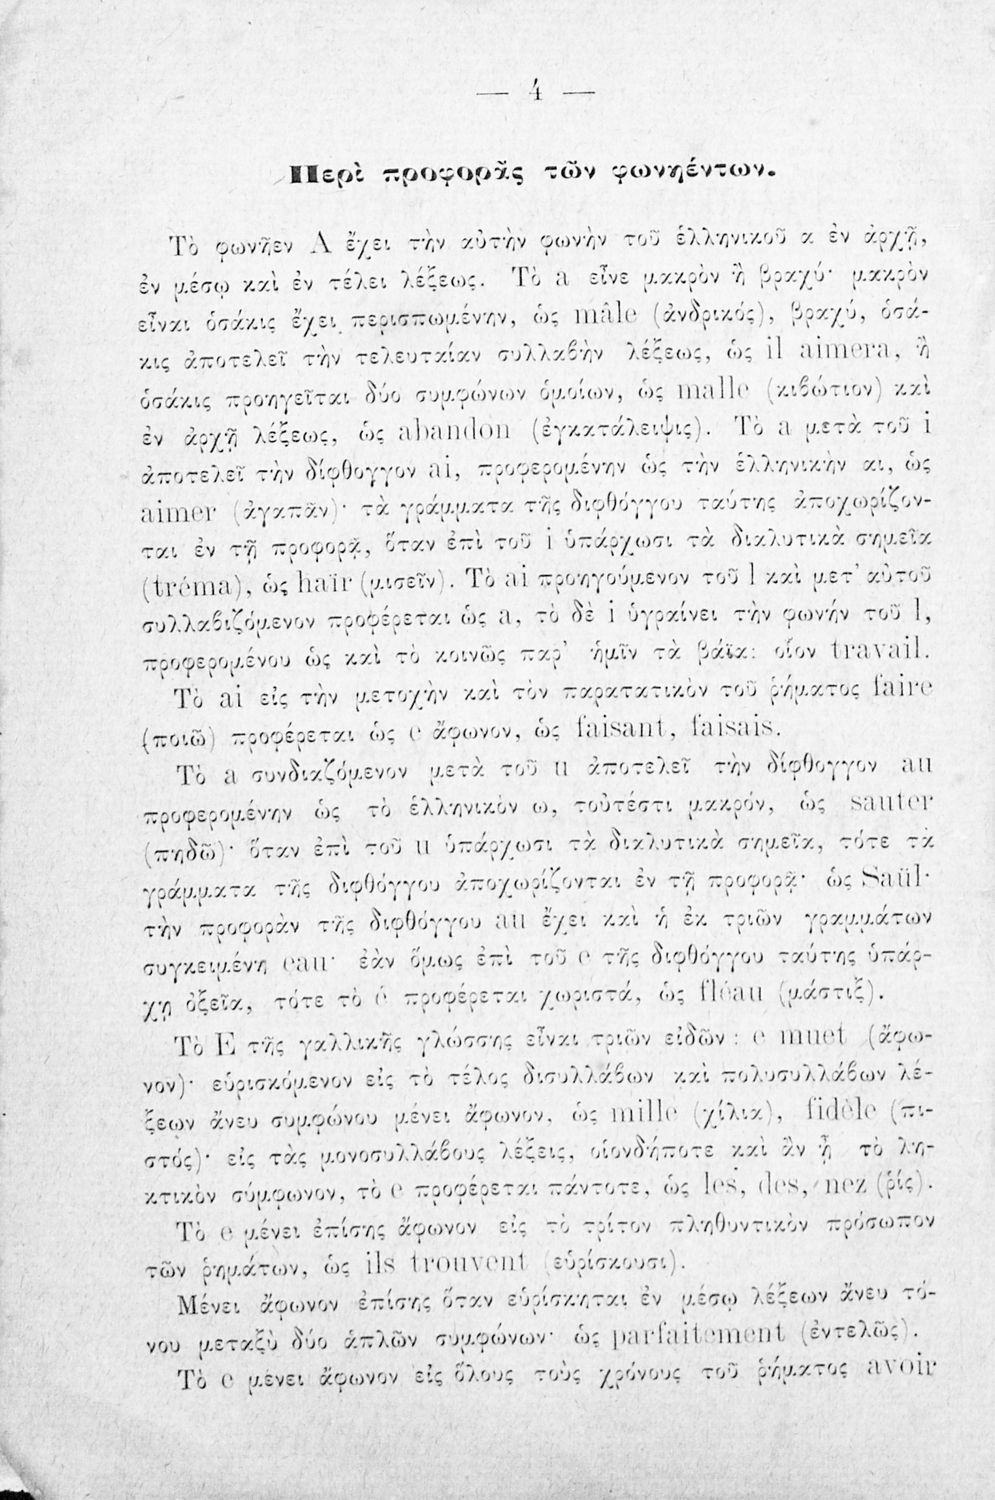 — 4 —
Περὶ προφορᾶς τῶν φωνηέντων.
Τὸ φωνῆεν A ἔχει τὴν αὐτὴν φωνὴν τοῦ ἑλληνικοῦ α ἐν ἀρχῇ,
ἐν μέσῳ καὶ ἐν τέλει λέξεως. Τὸ a εἶνε μακρὸν ἢ βραχύ· μακρὸν
εἶναι ὁσάκις ἔχει περισπωμένην, ὡς mâle (ἀνδρικός), βραχύ, ὁσά-
κις ἀποτελεῖ τὴν τελευταίαν συλλαβὴν λέξεως, ὡς il aimera, ἢ
ὁσάκις προηγεῖται δύο συμφώνων ὁμοίων, ὡς malle (κιβώτιον) καὶ
ἐν ἀρχῇ λέξεως, ὡς abandon (ἐγκατάλειψις). Τὸ a μετὰ τοῦ i
ἀποτελεῖ τὴν δίφθογγον ai, προφερομένην ὡς τὴν ἑλληνικὴν αι, ὡς
aimer (ἀγαπᾶν)· τὰ γράμματα τῆς διφθόγγου ταύτης ἀποχωρίζον-
ται ἐν τῇ προφορᾷ, ὅταν ἐπὶ τοῦ i ὑπάρχωσι τὰ διαλυτικὰ σημεῖα
(tréma), ὡς haïr (μισεῖν). Τὸ ai προηγούμενον τοῦ l καὶ μετ' αὐτοῦ
συλλαβιζόμενον προφέρεται ὡς a, τὸ δὲ i ὑγραίνει τὴν φωνήν τοῦ l,
προφερομένου ὡς καὶ τὸ κοινῶς παρ' ἡμῖν τὰ βάϊα: οἷον travail.
Τὸ ai εἰς τὴν μετοχὴν καὶ τὸν παρατατικὸν τοῦ ῥήματος faire
(ποιῶ) προφέρεται ὡς e ἄφωνον, ὡς faisant, faisais.
Τὸ a συνδιαζόμενον μετὰ τοῦ u ἀποτελεῖ τὴν δίφθογγον au
προφερομένην ὡς τὸ ἑλληνικὸν ω, τοὐτέστι μακρόν, ὡς sauter
(πηδῶ)· ὅταν ἐπὶ τοῦ u ὑπάρχωσι τὰ διαλυτικὰ σημεῖα, τότε τὰ
γράμματα τῆς διφθόγγου ἀποχωρίζονται ἐν τῇ προφορᾷ· ὡς Saül·
τὴν προφορὰν τῆς διφθόγγου au ἔχει καὶ ἡ ἐκ τριῶν γραμμάτων
συγκειμένη eau· ἐὰν ὅμως ἐπὶ τοῦ e τῆς διφθόγγου ταύτης ὑπάρ-
χῃ ὀξεῖα, τότε τὸ é προφέρεται χωριστά, ὡς fléau (μάστιξ).
Τὸ E τῆς γαλλικῆς γλώσσης εἶναι τριῶν εἰδῶν: e muet (ἄφω-
νον)· εὑρισκόμενον εἰς τὸ τέλος δισυλλάβων καὶ πολυσυλλάβων λέ-
ξεων ἄνευ συμφώνου μένει ἄφωνον, ὡς mille (χίλια), fidèle (πι-
στός)· εἰς τὰς μονοσυλλάβους λέξεις, οἱονδήποτε καὶ ἂν ᾖ τὸ λη-
κτικὸν σύμφωνον, τὸ e προφέρεται πάντοτε, ὡς les, des, nez (ῥίς).
Τὸ e μένει ἐπίσης ἄφωνον εἰς τὸ τρίτον πληθυντικὸν πρόσωπον
τῶν ῥημάτων, ὡς ils trouvent (εὑρίσκουσι).
Μένει ἄφωνον ἐπίσης ὅταν εὑρίσκηται ἐν μέσῳ λέξεων ἄνευ τό-
νου μεταξὺ δύο ἁπλῶν συμφώνων· ὡς parfaitement (ἐντελῶς).
Τὸ e μένει ἄφωνον εἰς ὅλους τοὺς χρόνους τοῦ ῥήματος avoir